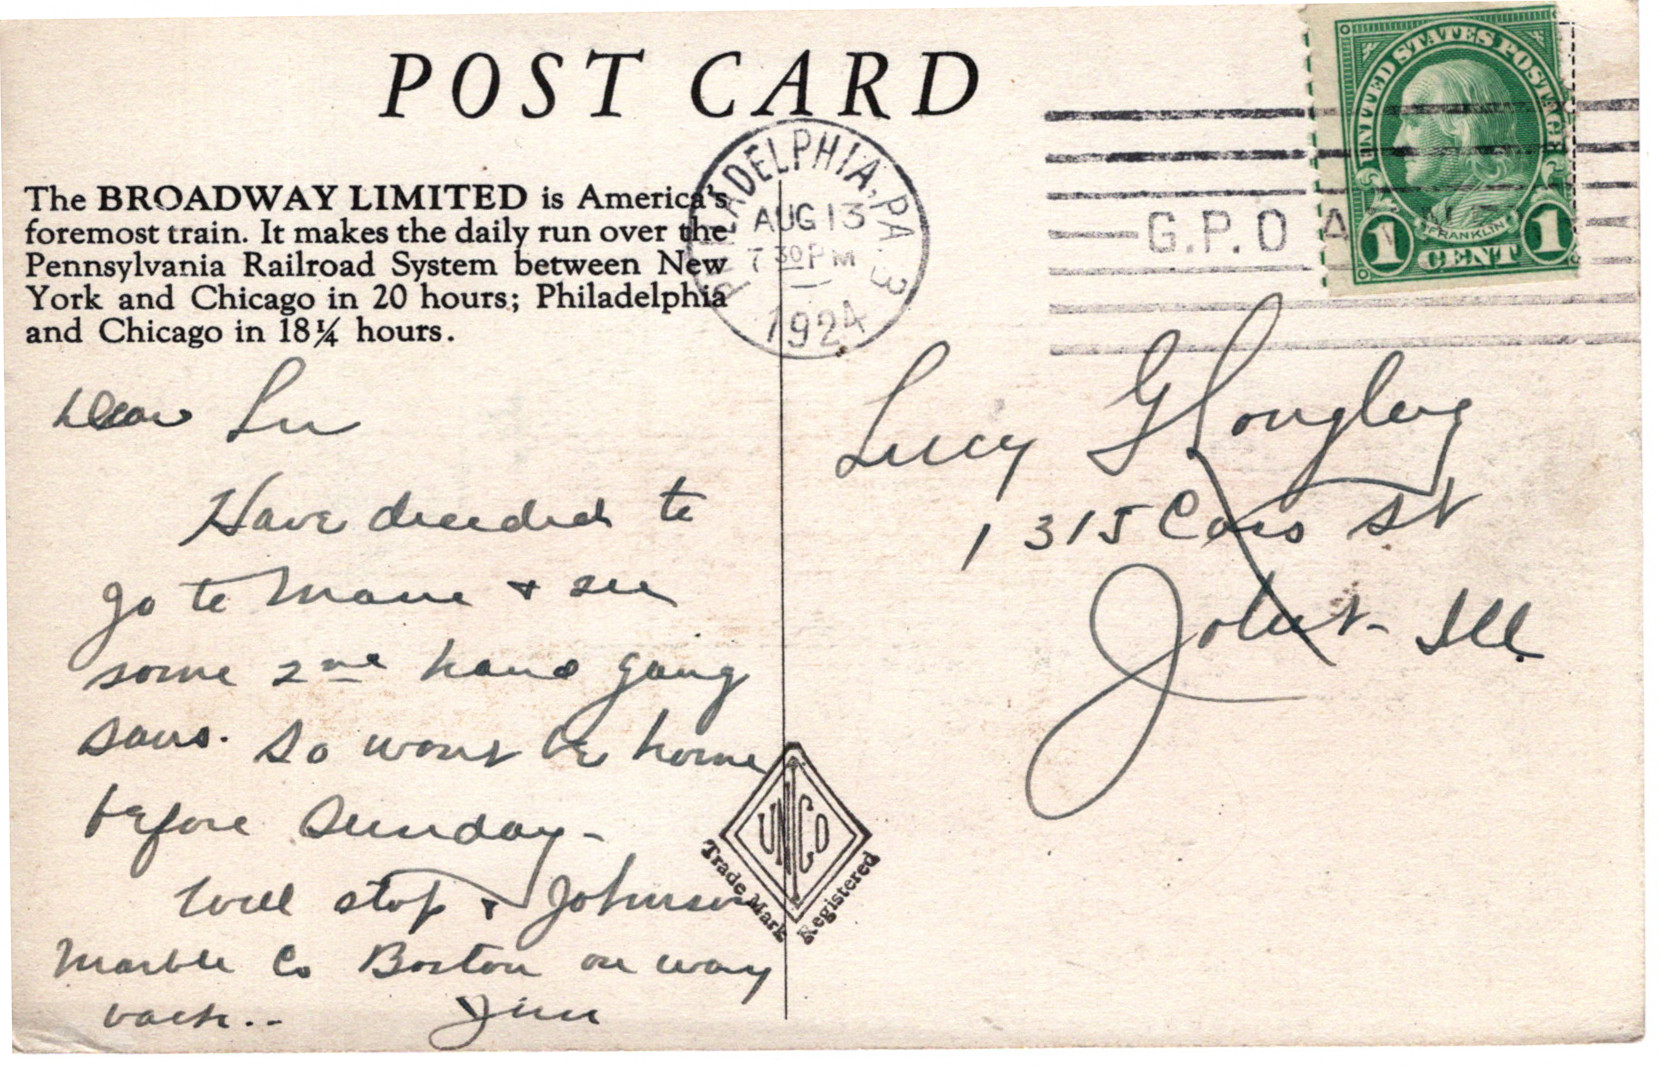 POST CARD
The BROADWAY LIMITED is America's
foremost train. It makes the daily run over the
Pennsylvania Railroad System between New
York and Chicago in 20 hours; Philadelphia
and Chicago in 18¼ hours.
PHILADELPHIA, PA. 3
AUG 13
7 30 PM
1924
G.P.O
UNITED STATES POSTAGE
FRANKLIN
1 CENT 1
Dear Lu
Have decided to
go to Maine + see
some 2nd hand gang
saws. So wont be home
before Sunday -
Will stop Johnson
Marble Co Boston on way
back..
Jim
UNICO
Trade Mark Registered
Lucy G Longley
1315 Cass St
Joliet - Ill